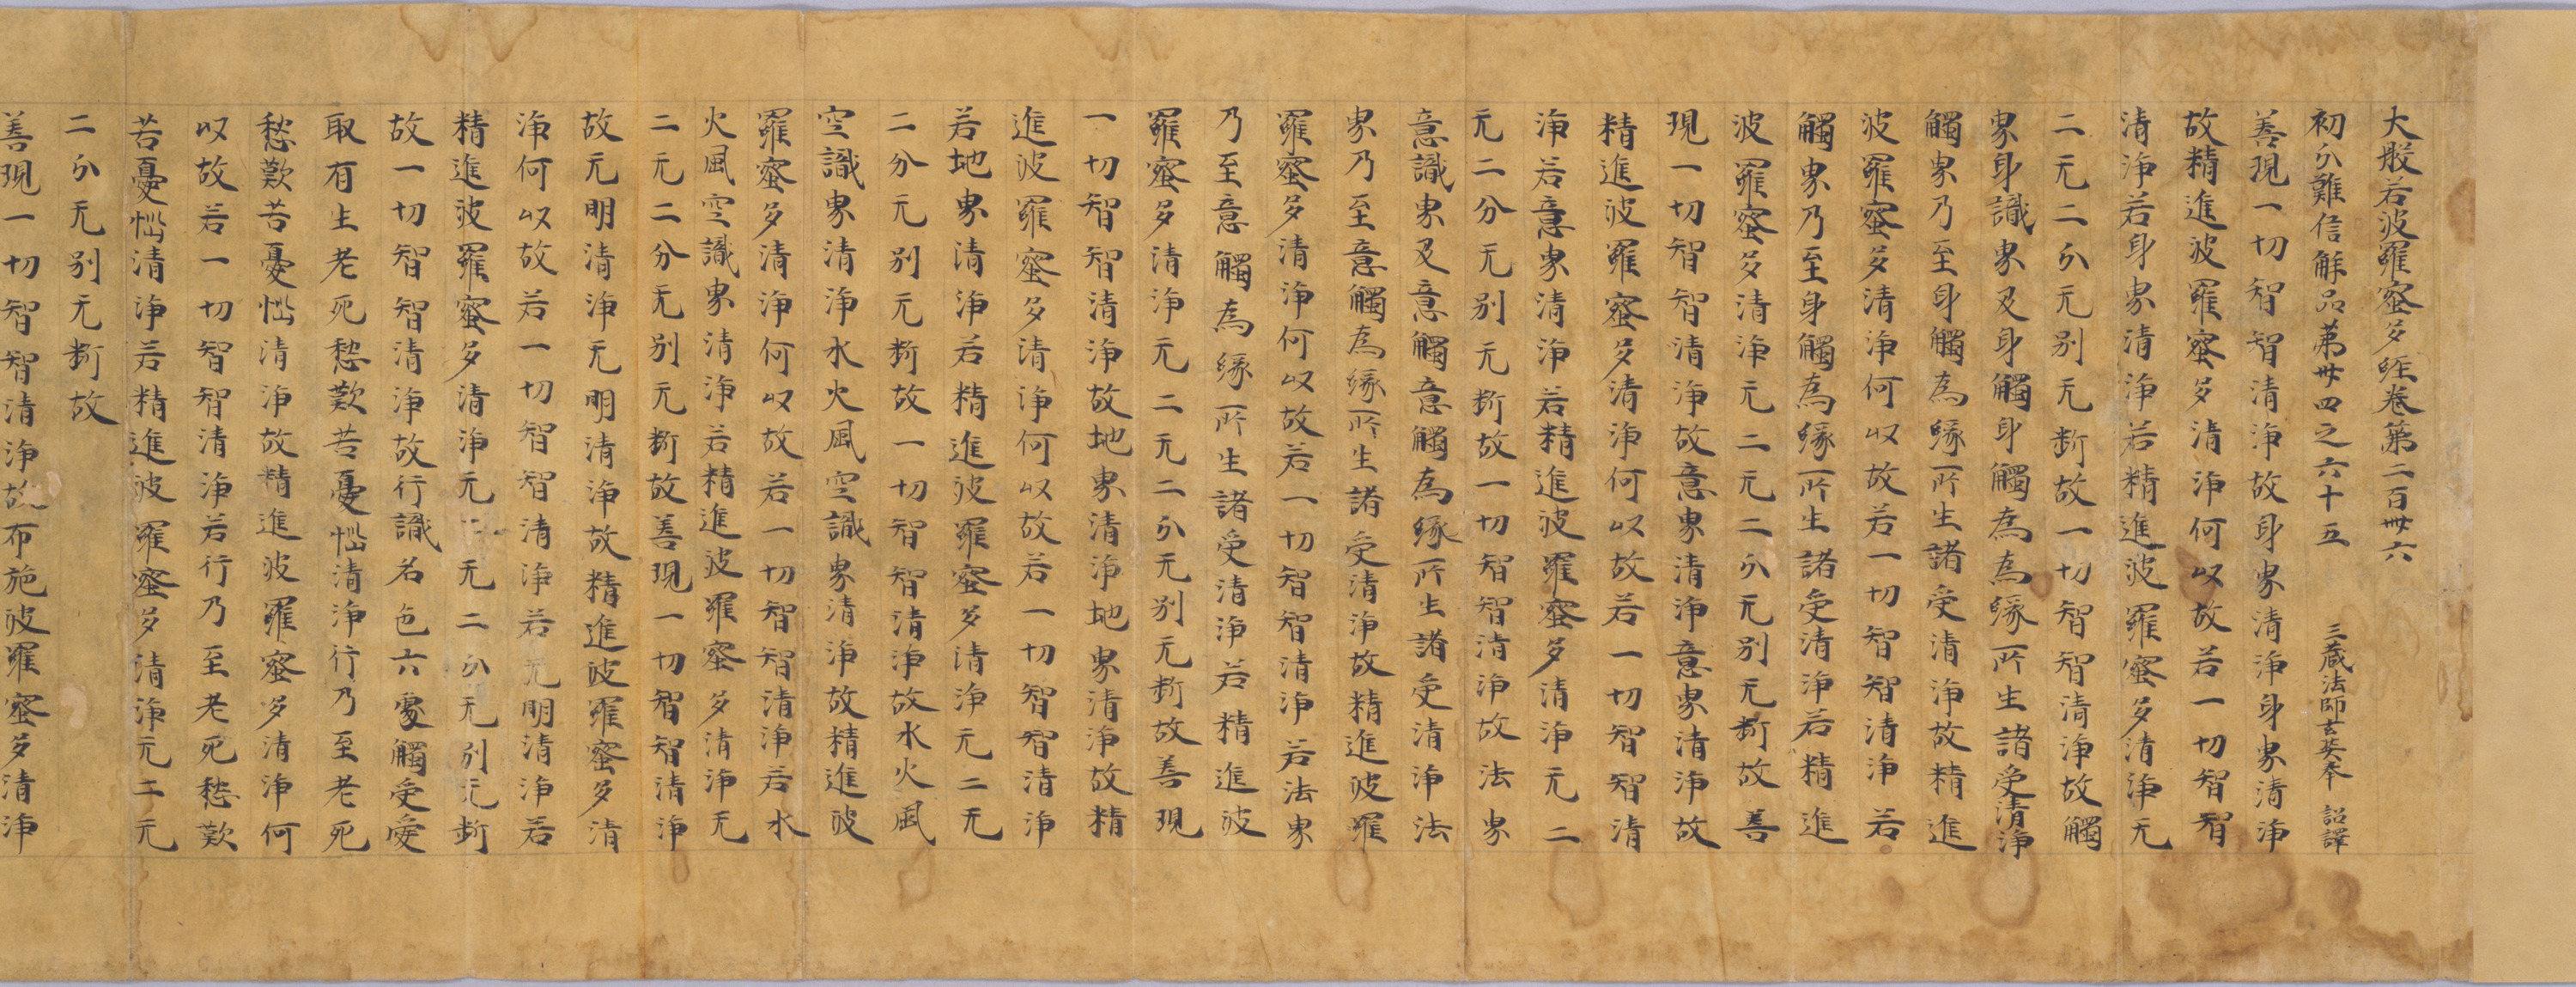 大般若波羅蜜多經卷第二百卌六
初分難信解品第卅四之六十五 三藏法師玄奘奉 詔譯
善現一切智智清淨故身界清淨身界清淨
故精進波羅蜜多清淨何以故若一切智智
清淨若身界清淨若精進波羅蜜多清淨无
二无二分无别无断故一切智智清淨故觸
界身識界及身觸身觸為為緣所生諸受清淨
觸界乃至身觸為緣所生諸受清淨故精進
波羅蜜多清淨何以故若一切智智清淨若
觸界乃至身觸為緣所生諸受清淨若精進
波羅蜜多清淨无二无二分无别无断故善
現一切智智清淨故意界清淨意界清淨故
精進波羅蜜多清淨何以故若一切智智清
淨若意界清淨若精進波羅蜜多清淨无二
无二分无别无断故一切智智清淨故法界
意識界及意觸意觸為緣所生諸受清淨法
界乃至意觸為緣所生諸受清淨故精進波羅
羅蜜多清淨何以故若一切智智清淨若法界
乃至意觸為緣所生諸受清淨若精進波
羅蜜多清淨无二无二分无别无断故善現
一切智智清淨故地界清淨地界清淨故精
進波羅蜜多清淨何以故若一切智智清淨
若地界清淨若精進波羅蜜多清淨无二无
二分无别无断故一切智智清淨故水火風
空識界清淨水火風空識界清淨故精進波
羅蜜多清淨何以故若一切智智清淨若水
火風空識界清淨若精進波羅蜜多清淨无
二无二分无别无断故善現一切智智清淨
故无明清淨无明清淨故精進波羅蜜多清
淨何以故若一切智智清淨若无明清淨若
精進波羅蜜多清淨无二无二分无别无断
故一切智智清淨故行識名色六處觸受愛
取有生老死愁歎苦憂惱清淨行乃至老死
愁歎苦憂惱清淨故精進波羅蜜多清淨何
以故若一切智智清淨若行乃至老死愁歎
苦憂惱清淨若精進波羅蜜多清淨无二无
二分无别无断故
善現一切智智清淨故布施波羅蜜多清淨